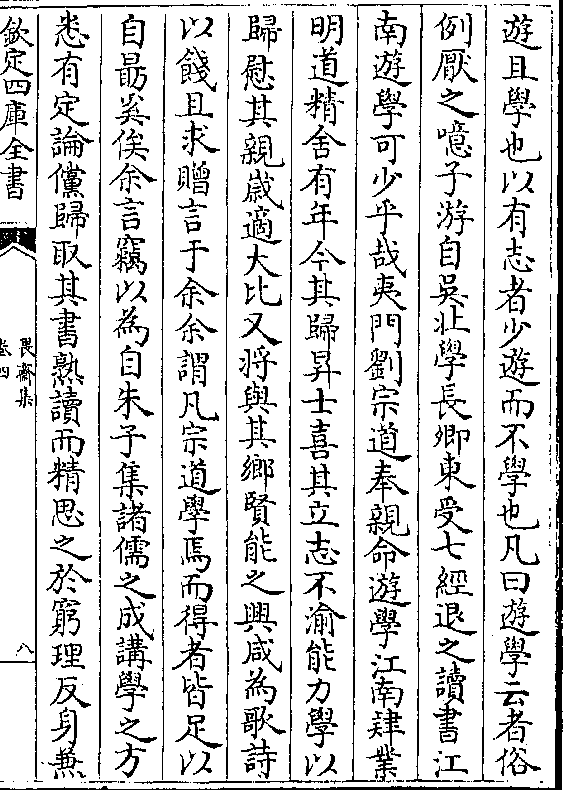 遊且學也以有志者少遊而不學也凡曰遊學云者俗
例厭之噫子游自吳北學長卿東受七經退之讀書江
南遊學可少乎哉夷門劉宗道奉親命遊學江南肄業
明道精舍有年今其歸昇士喜其立志不渝能力學以
歸慰其親歲適大比又將與其鄉賢能之興咸為歌詩
以餞且求贈言于余余謂凡宗道學焉而得者皆足以
自勗奚俟余言竊以為自朱子集諸儒之成講學之方
悉有定論儻歸取其書熟讀而精思之於窮理反身兼
欽定四庫全書
畏齋集
卷四
八